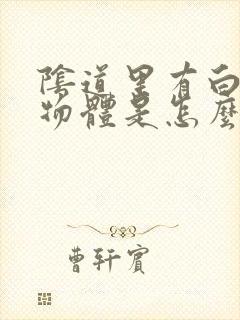 陰道里有白
物體是怎麼
曹轩賓